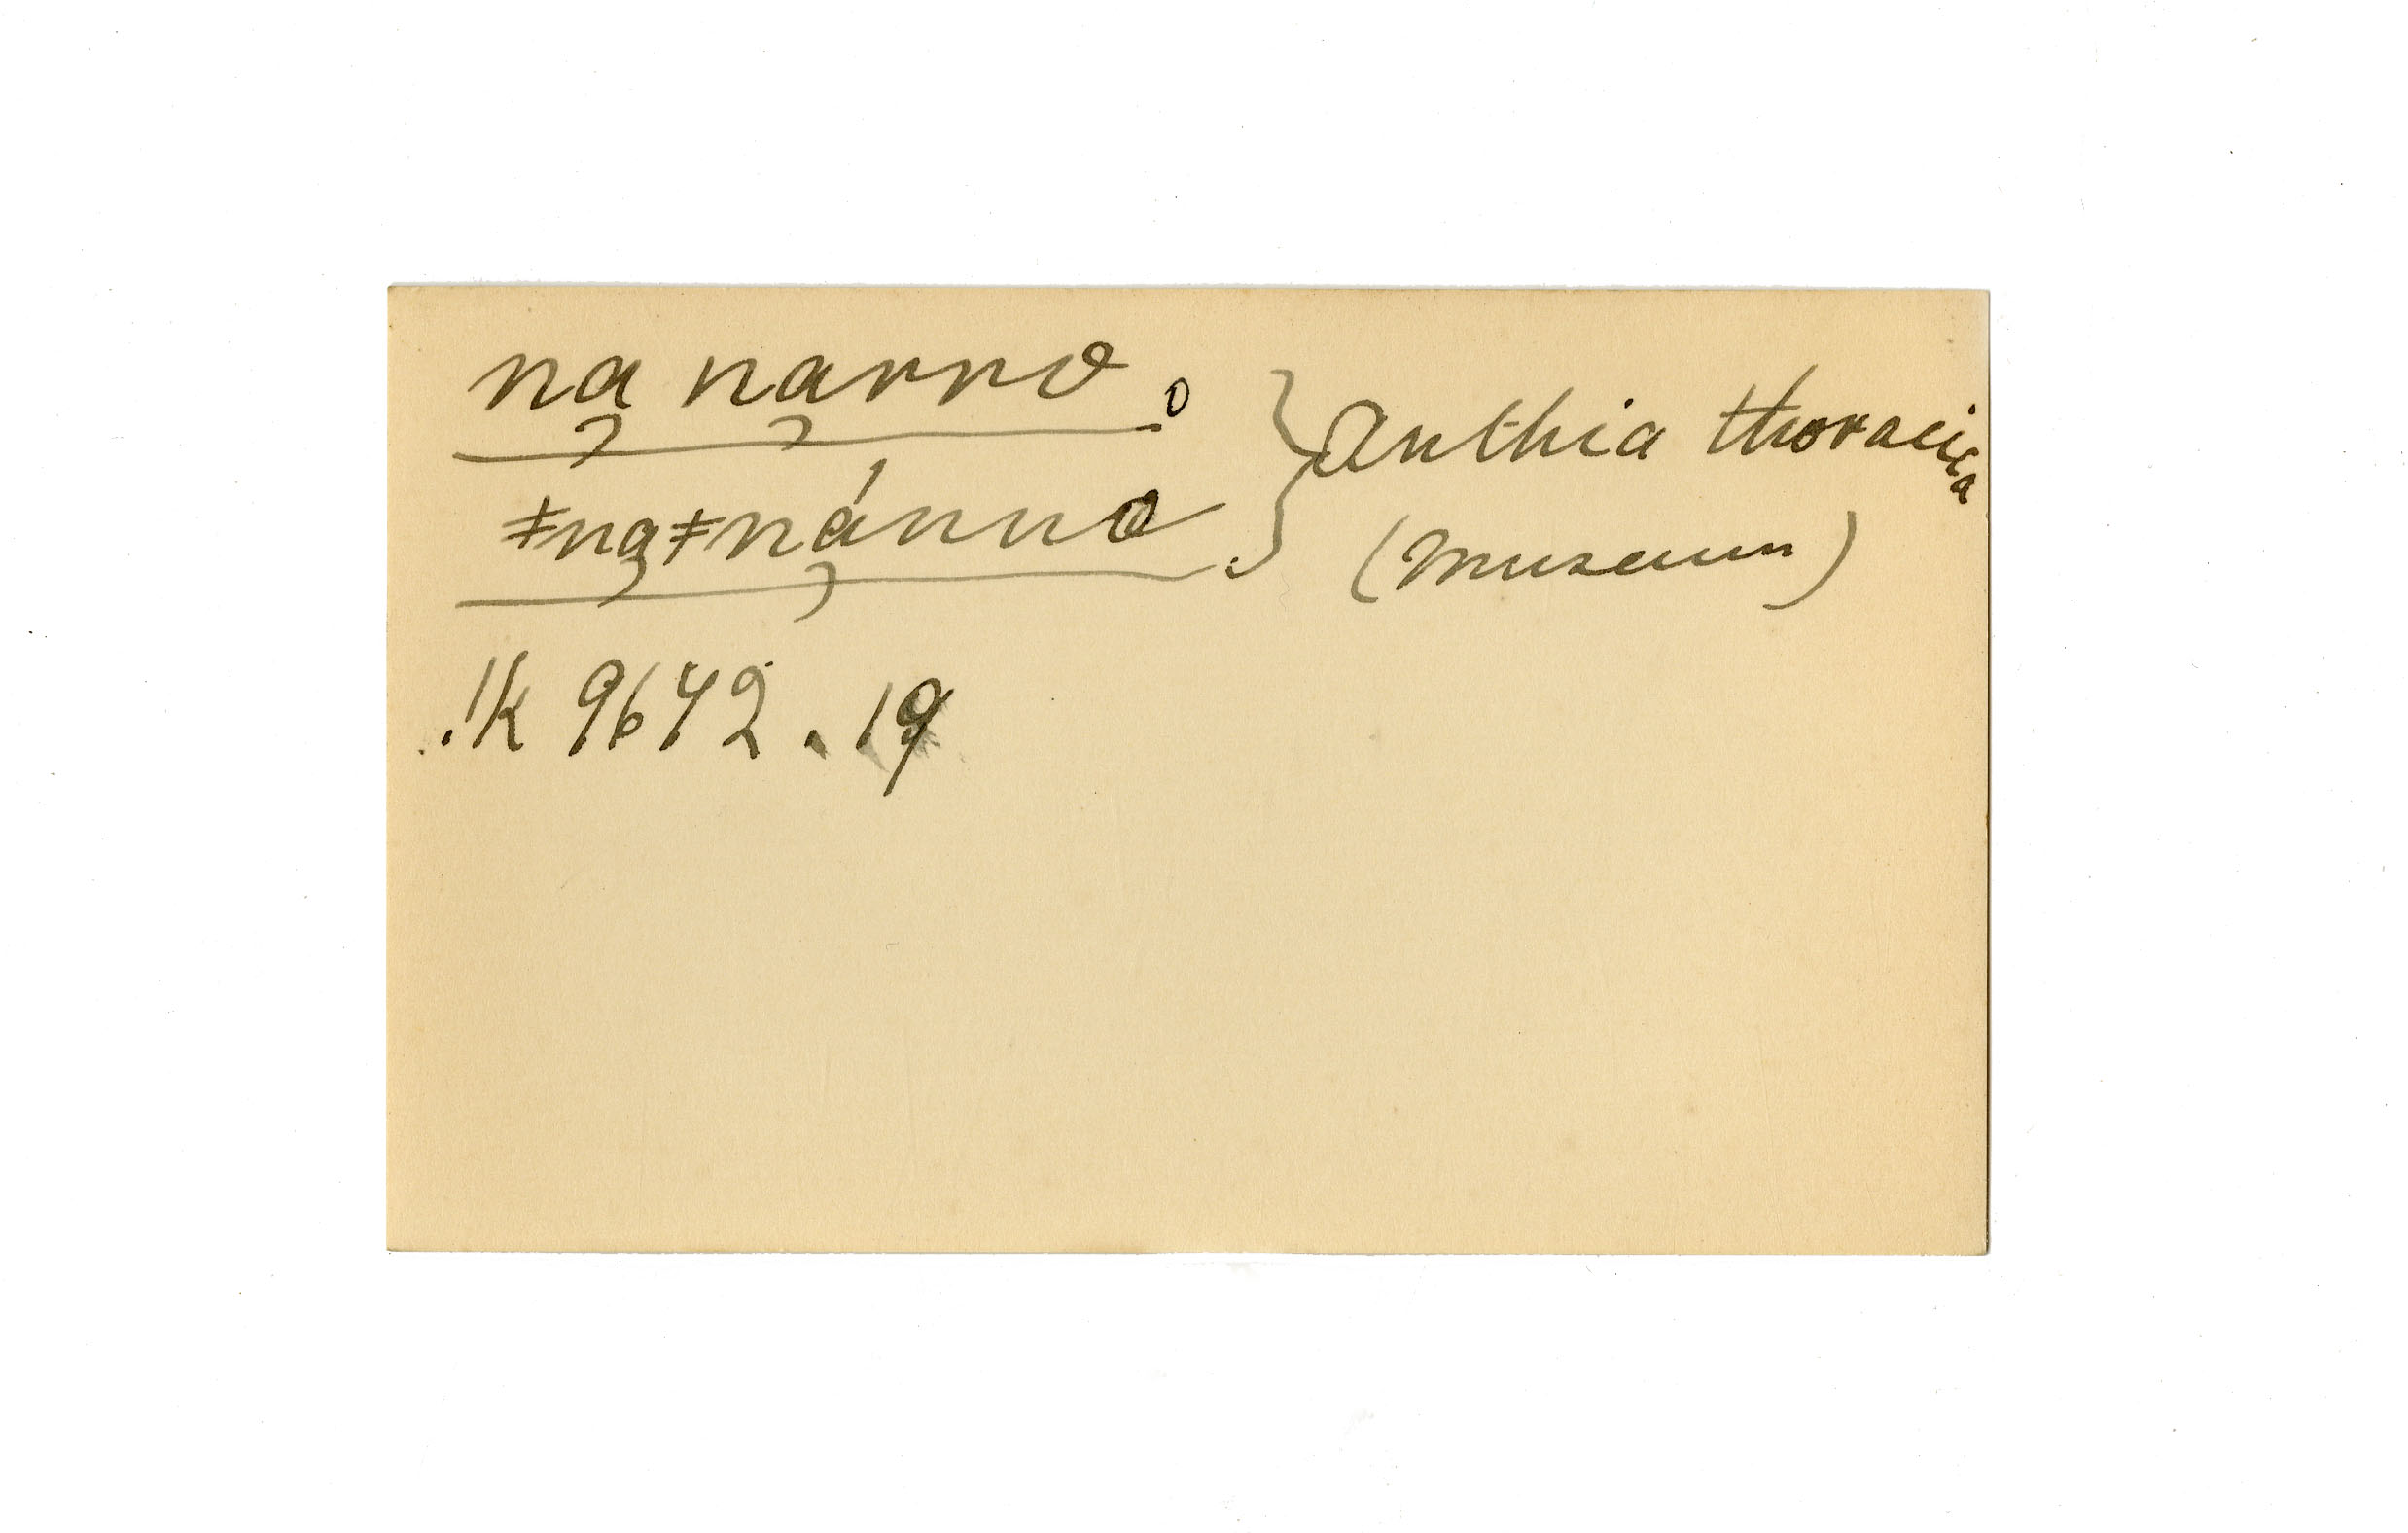 ną nąrro.
ǂnąǂną́nno. } Anthia thoracica
(Museum)
!k 9642.19